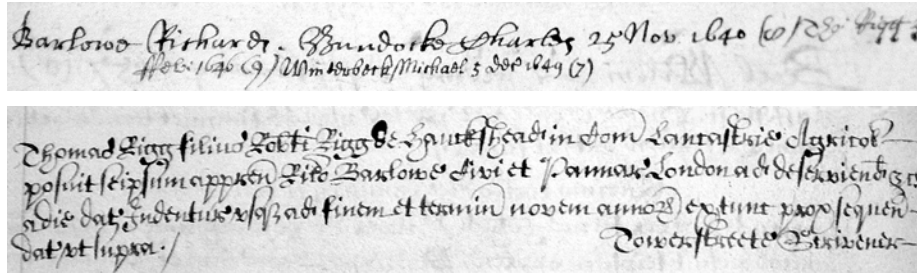 Barlowe Richard. Burdocke Charles 25 Nov. 1640 (8) Tho: Rigg
ffeb: 1640 (9) / Winterbeck / Michael 5 Dec 1649 (7)
Thomas Rigg filius Robti Rigg de Hauckshead in Com Lancastrie Agricol
posuit seipsum appren Rico Barlowe Civi et Pannar London ad deserviend
a die dat Indenture usq ad finem et termin novem annor extunc prox sequen
dat ut supra./ Towerstreete Scrivener